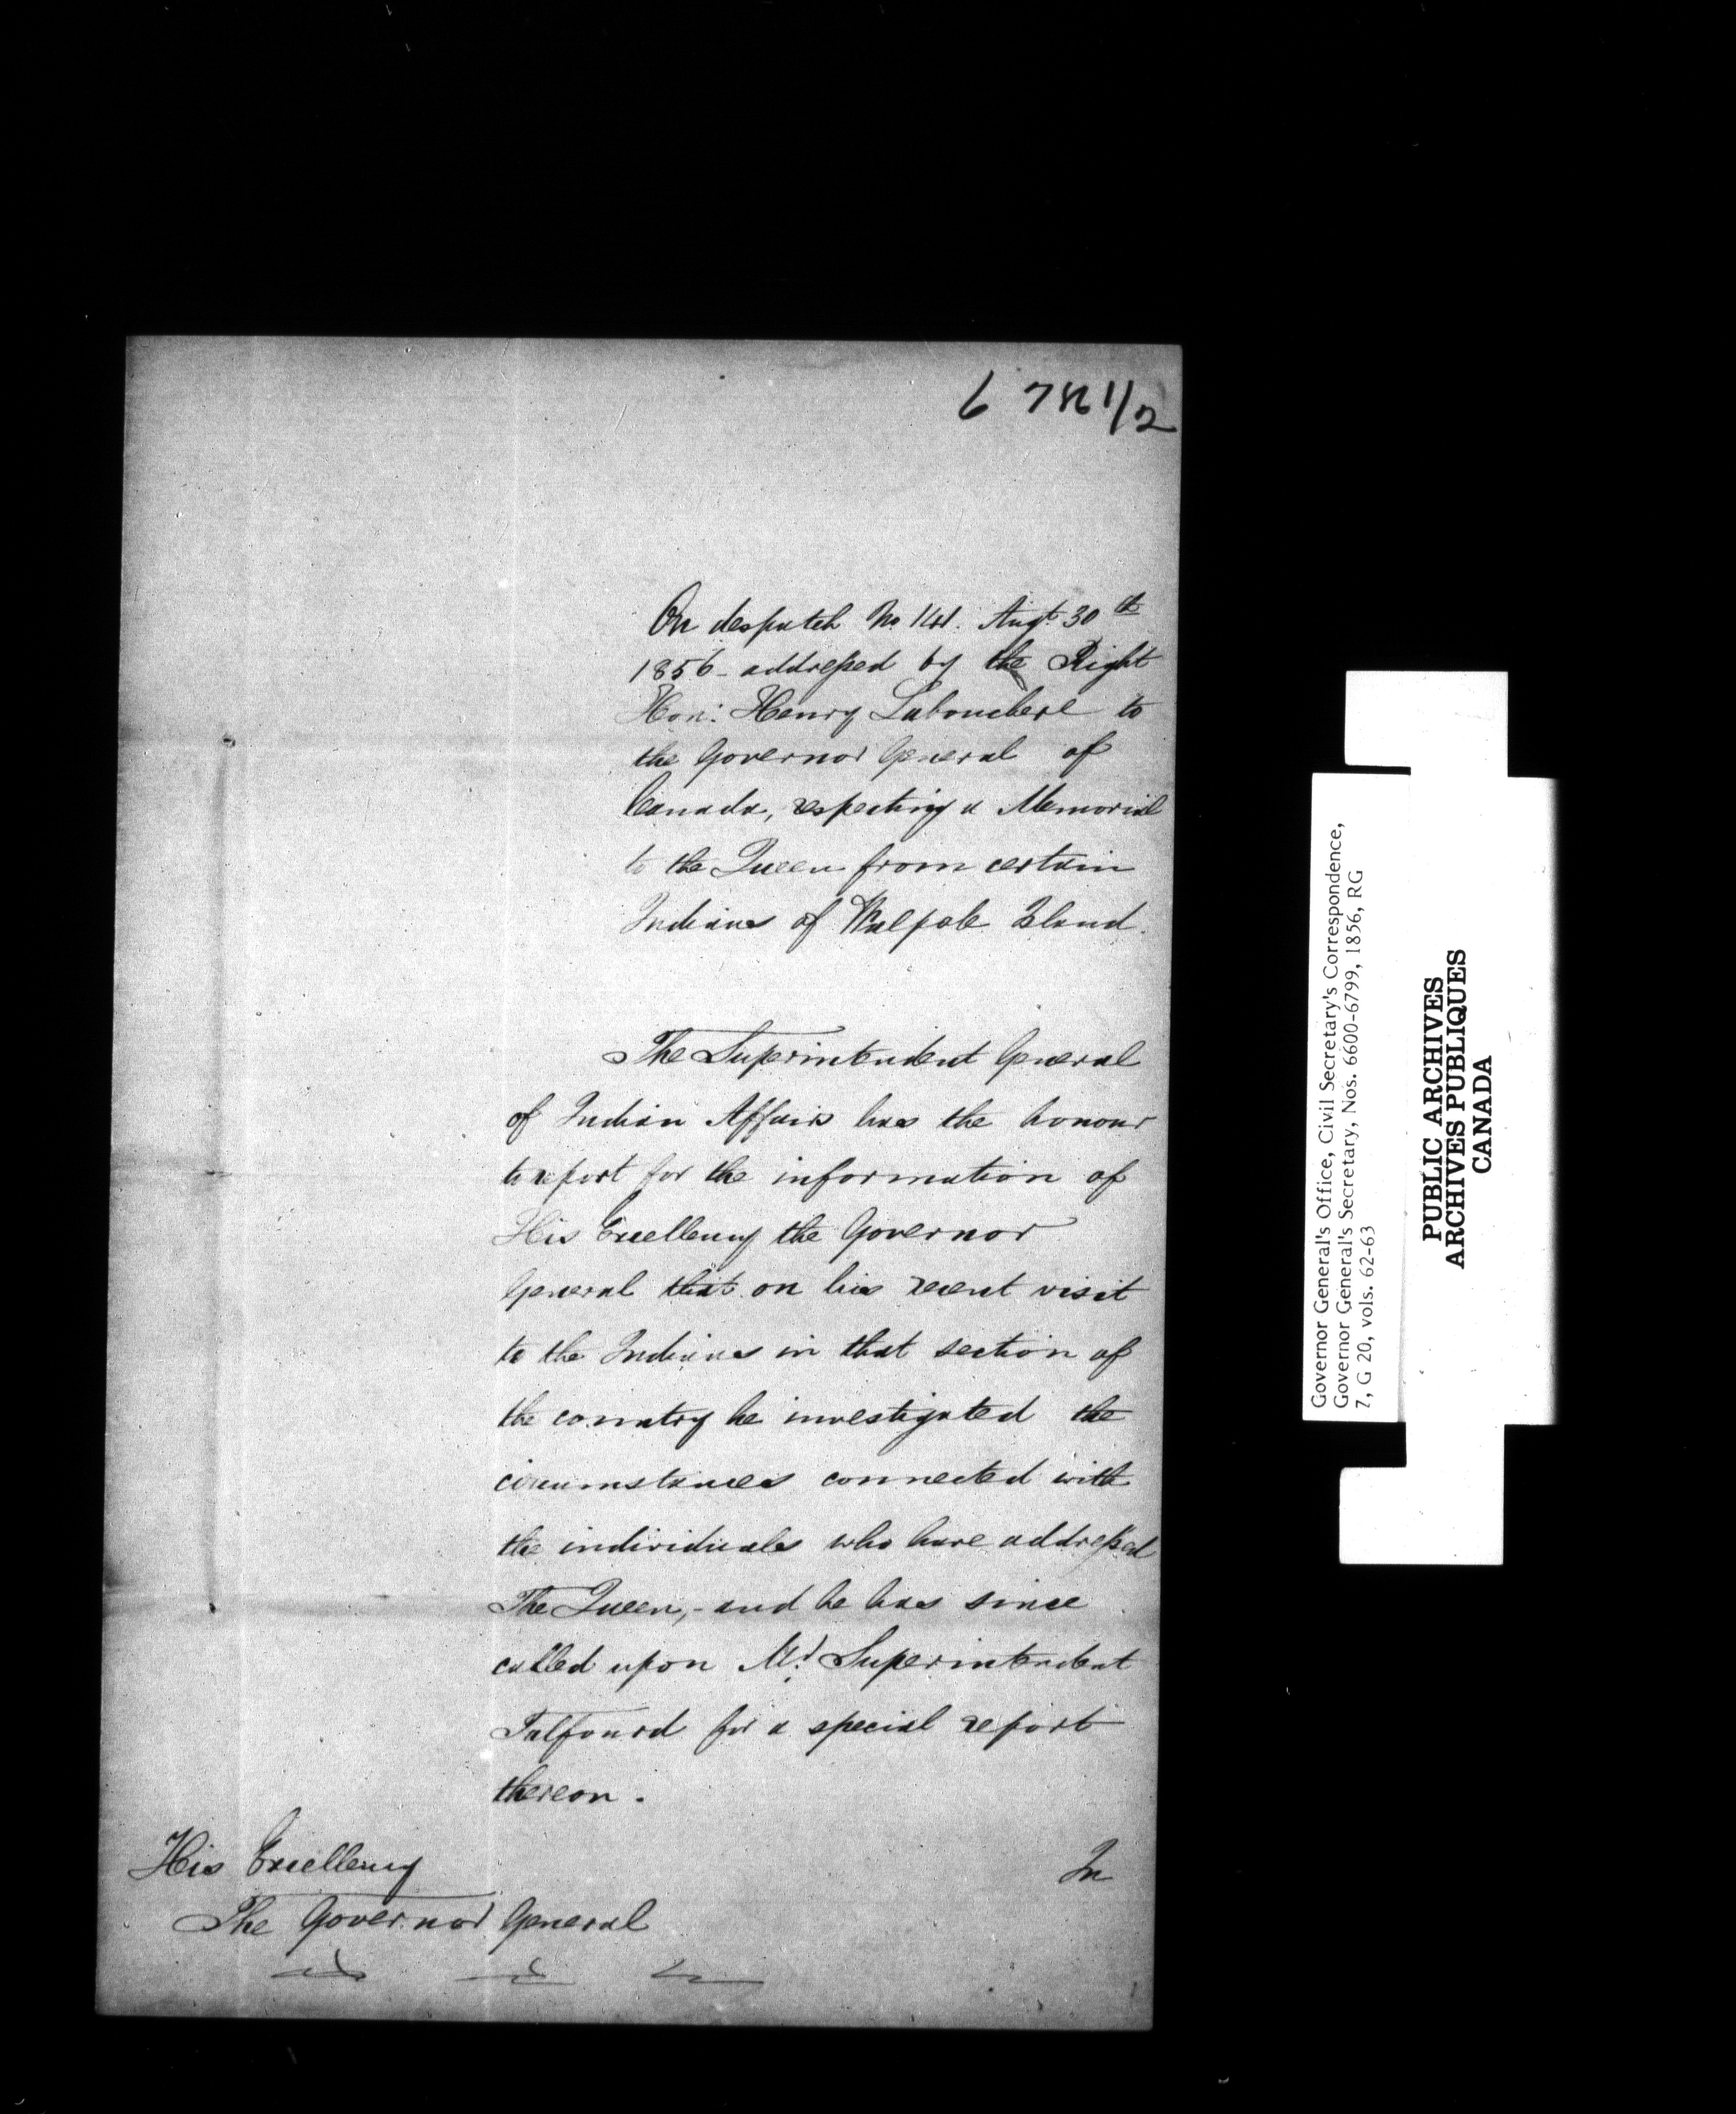 6781 1/2
On despatch No. 141. Augt. 30th
1856 - addressed by the Right
Hon: Henry Labouchere to
the Governor General of
Canada, respecting a Memorial
to the Queen from certain
Indians of Walpole Island.
The Superintendent General
of Indian Affairs has the honour
to report for the information of
His Excellency the Governor
General that on his recent visit
to the Indians in that section of
the country he investigated the
circumstances connected with
the individuals who have addressed
The Queen, - and he has since
called upon Mr. Superintendent
Talfourd for a special report
thereon.
His Excellency
The Governor General
In
Governor General's Office, Civil Secretary's Correspondence,
Governor General's Secretary, Nos. 6600-6799, 1856, RG
7, G 20, vols. 62-63
PUBLIC ARCHIVES
ARCHIVES PUBLIQUES
CANADA